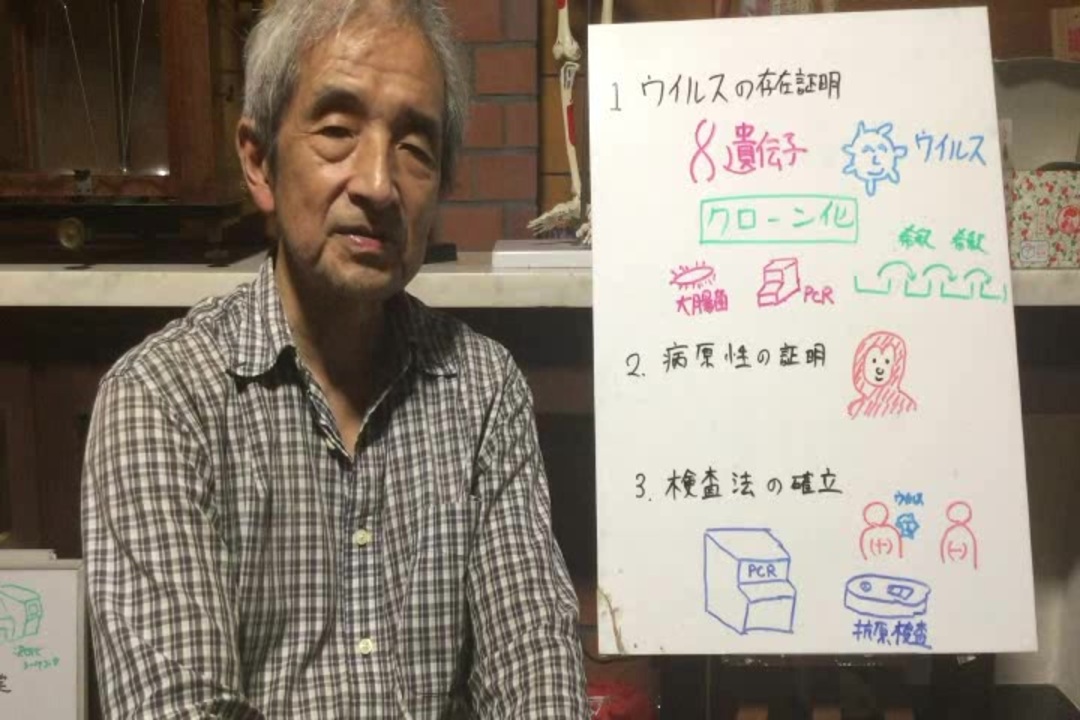 1 ウイルスの存在証明
遺伝子 ウイルス
クローン化
希釈 希釈
大腸菌 PCR
2. 病原性の証明
3. 検査法の確立
ウイルス
(+) (-)
PCR
抗原検査